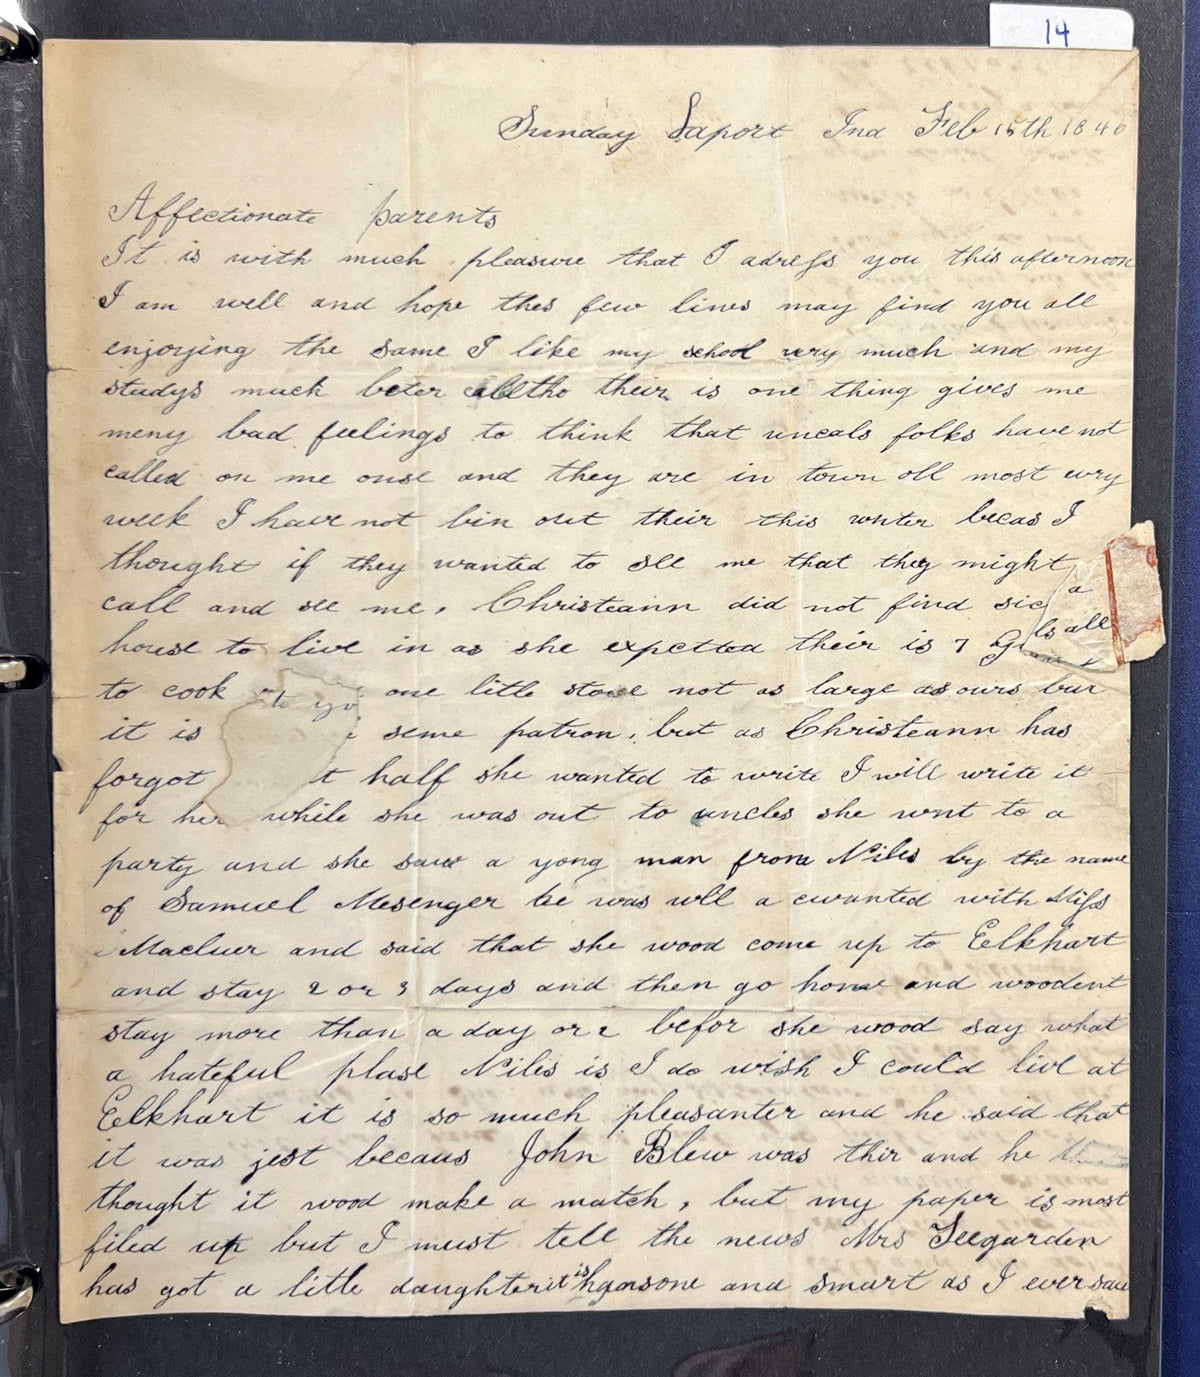 14
Sunday Laport Ind Feb 15th 1846
Affectionate parents
It is with much pleasure that I adress you this afternoon
I am well and hope thes few lines may find you all
enjoying the same I like my school very much and my
studys much beter alltho their is one thing gives me
meny bad feelings to think that uncals folks have not
called on me onse and they are in town oll most evry
week I have not bin out their this wnter becas I
thought if they wanted to see me that they might
call and see me, Christeann did not find sic a
house to live in as she expetted their is 7 Gi ls all
to cook one litle stove not as large as ours but
it is seme patron, but as Christeann has
forgot t half she wanted to write I will write it
for her while she was out to uncles she wnt to a
party and she saw a yong man from Niles by the name
of Samuel Mesenger he was wll a cwanted with Miss
Macluer and said that she wood come up to Eelkhart
and stay 2 or 3 days and then go home and woodent
stay more than a day or 2 befor she wood say what
a hateful plase Niles is I do wish I could live at
Eelkhart it is so much pleasanter and he said that
it was jest becaus John Blew was thir and he
thought it wood make a match, but my paper is most
filed up but I must tell the news Mrs Seegarden
has got a litle daughter it is hansone and smart as I ever saw